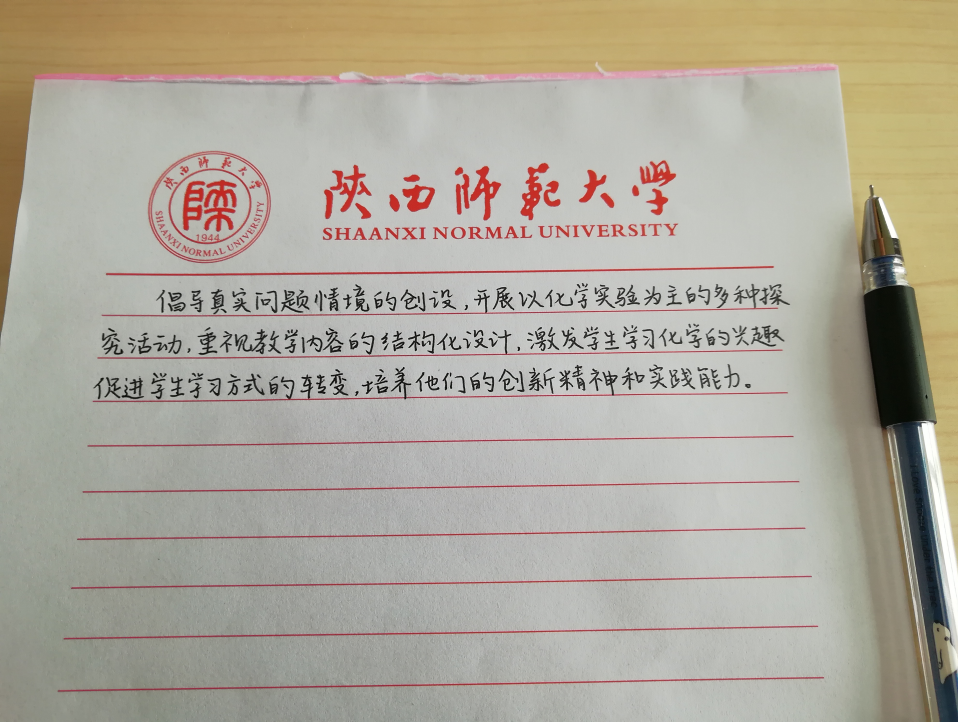 陕西师范大学
陕
1944
SHAANXI NORMAL UNIVERSITY
陝西師範大學
SHAANXI NORMAL UNIVERSITY
倡导真实问题情境的创设，开展以化学实验为主的多种探
究活动，重视教学内容的结构化设计，激发学生学习化学的兴趣
促进学生学习方式的转变，培养他们的创新精神和实践能力。